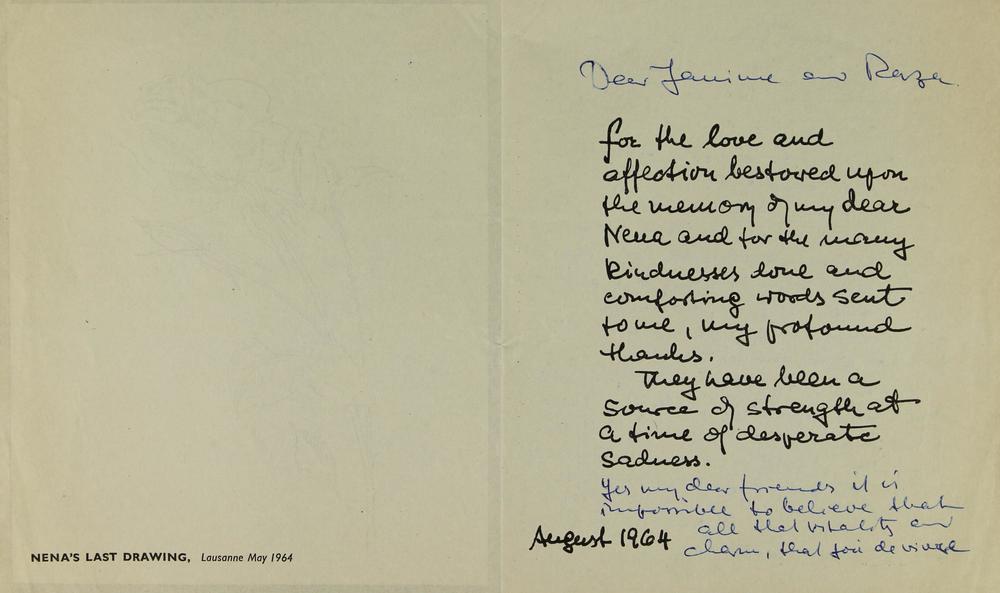 NENA'S LAST DRAWING, Lausanne May 1964
Dear Janine and Raza
for the love and
affection bestowed upon
the memory of my dear
Nena and for the many
kindnesses done and
comforting words sent
to me, my profound
thanks.
They have been a
source of strength at
a time of desperate
sadness.
Yes my dear friends it is
impossible to believe that
all that vitality and
charm, that joie de vivre
August 1964